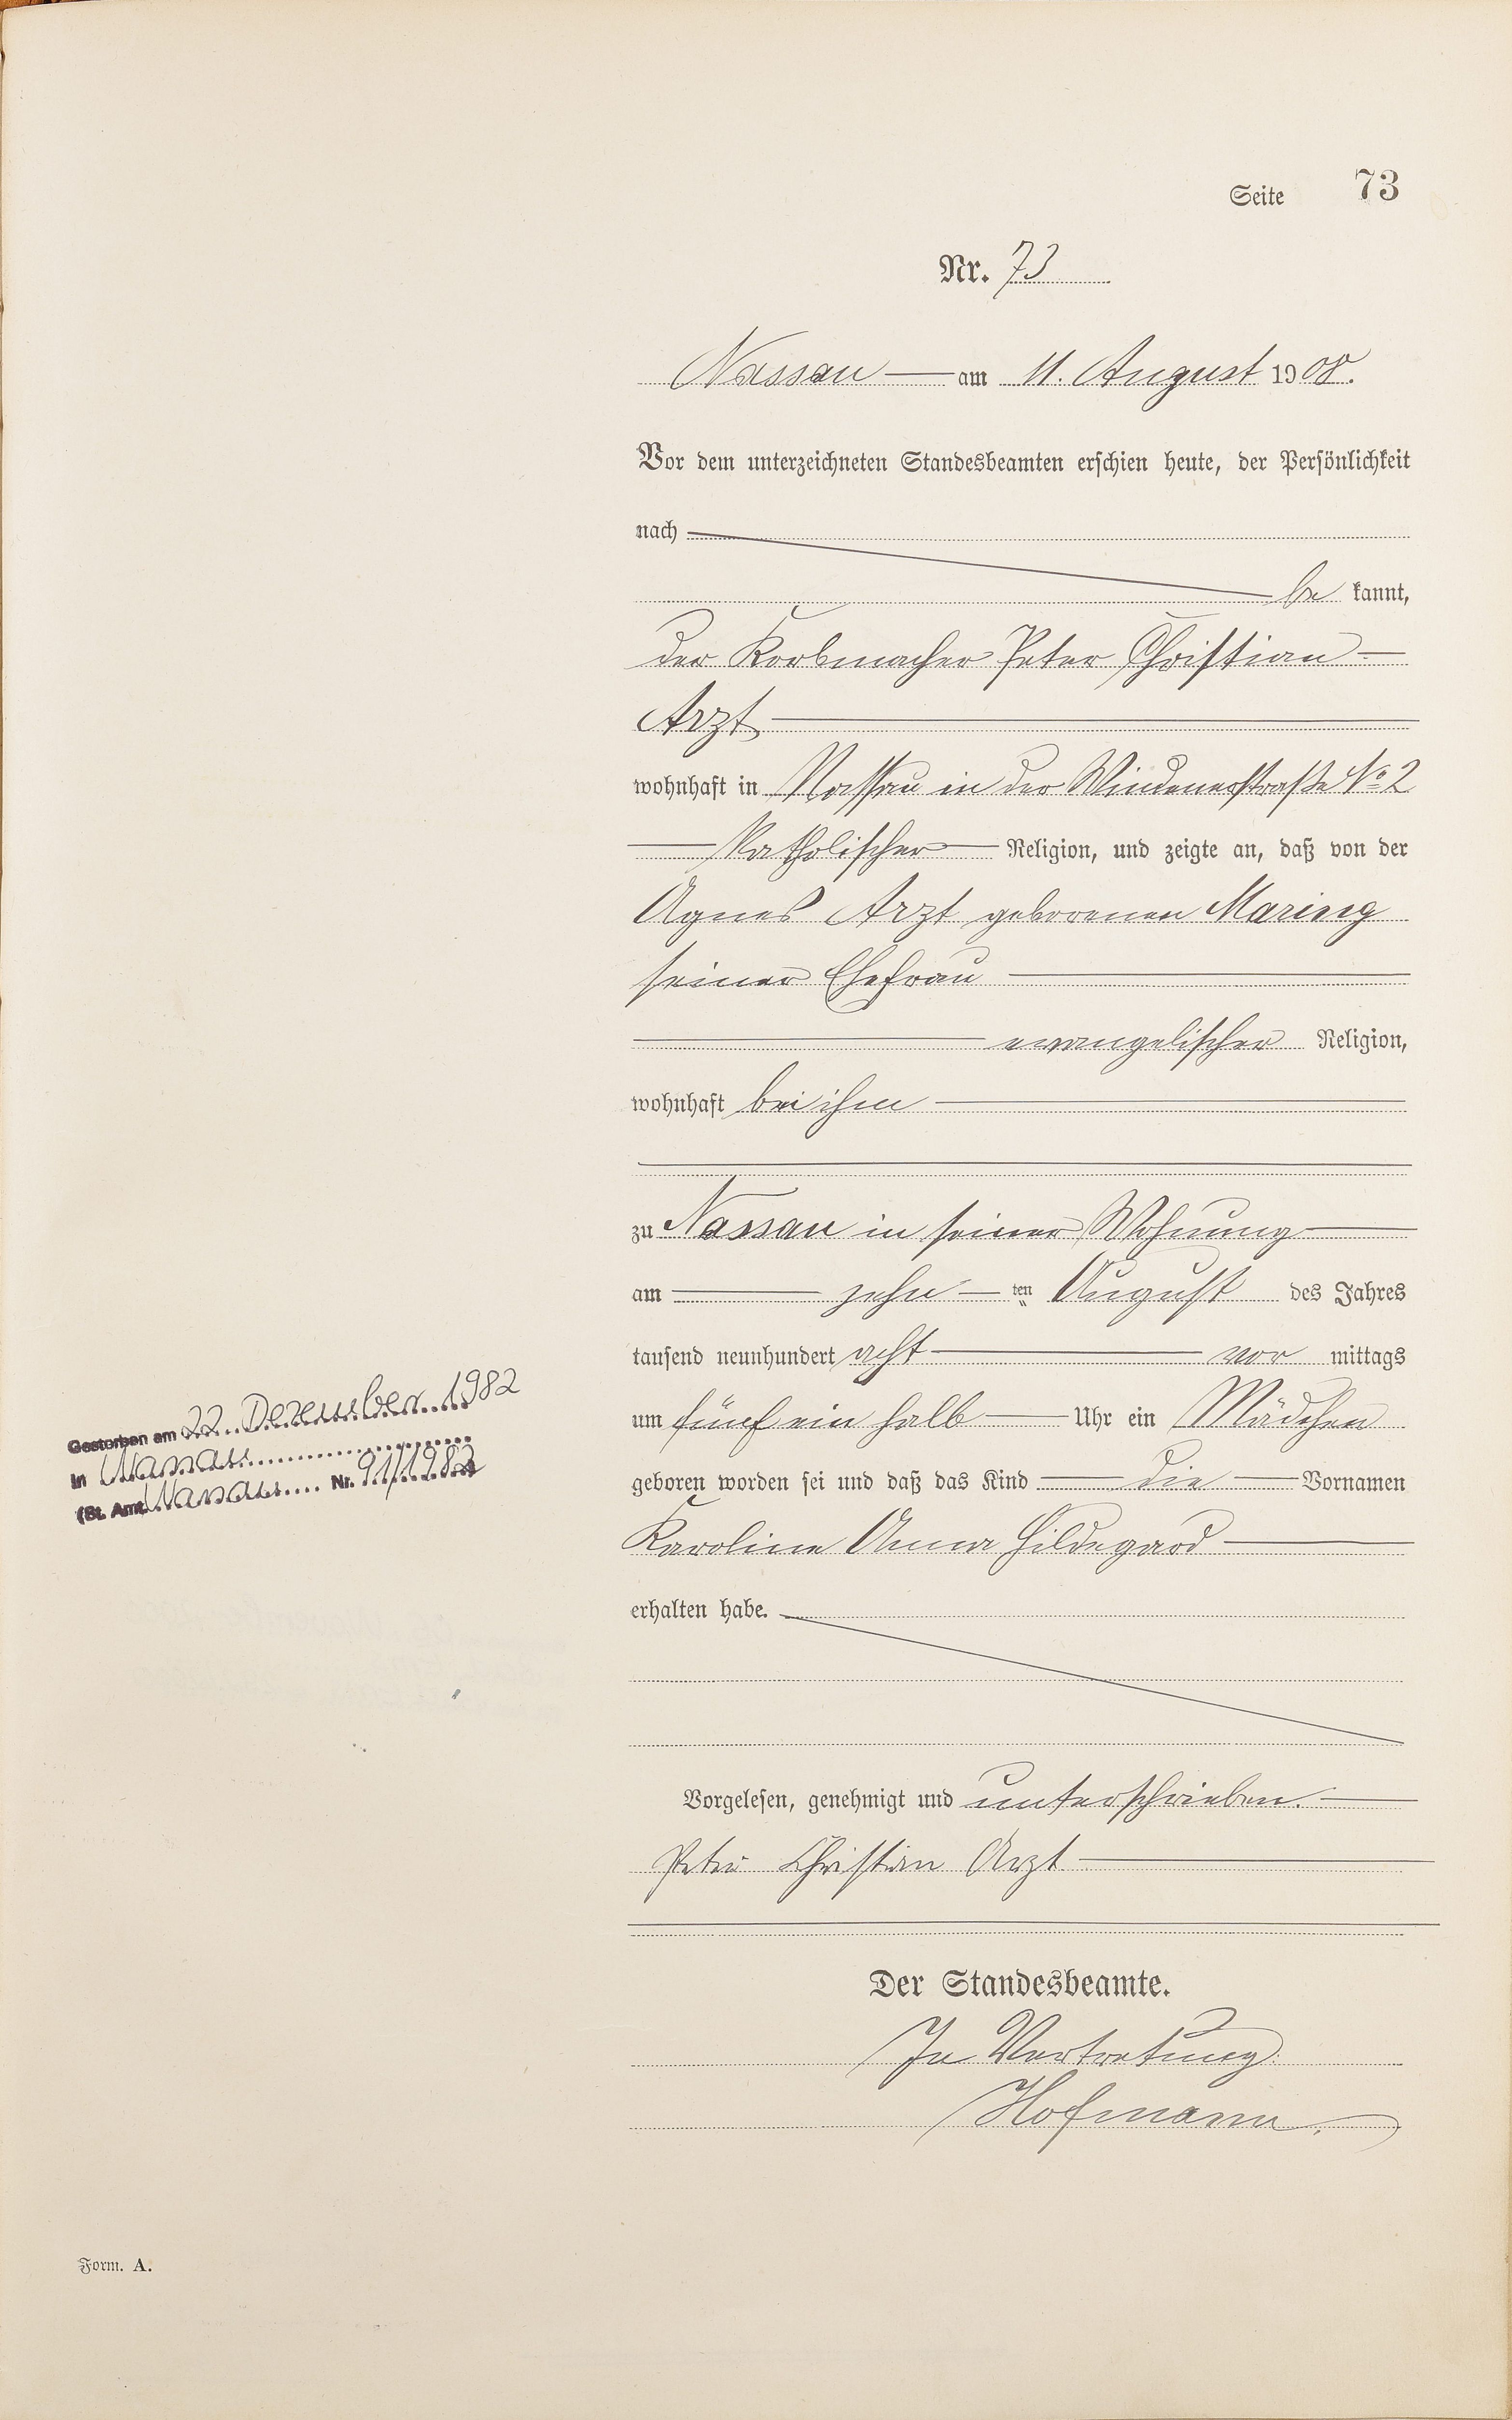 Seite 73
Nr. 73
Nassau am 11. August 1908.
Vor dem unterzeichneten Standesbeamten erschien heute, der Persönlichkeit
nach
be kannt,
der Korbmacher Peter Christian
Arzt,
wohnhaft in Nassau in der Windenerstraße No 2
katholischer Religion, und zeigte an, daß von der
Agnes Arzt geborenen Maring
seiner Ehefrau
evangelischer Religion,
wohnhaft bei ihm
zu Nassau in seiner Wohnung
am zehn ten August des Jahres
tausend neunhundert acht vor mittags
um fünf ein halb Uhr ein Mädchen
geboren worden sei und daß das Kind die Vornamen
Karoline Anna Hildegard
erhalten habe.
Vorgelesen, genehmigt und unterschrieben.
Peter Christian Arzt
Der Standesbeamte.
In Vertretung:
Hofmann.
Gestorben am 22. Dezember 1982
in Nassau
(St. Amt Nassau Nr. 91/1982
Form. A.